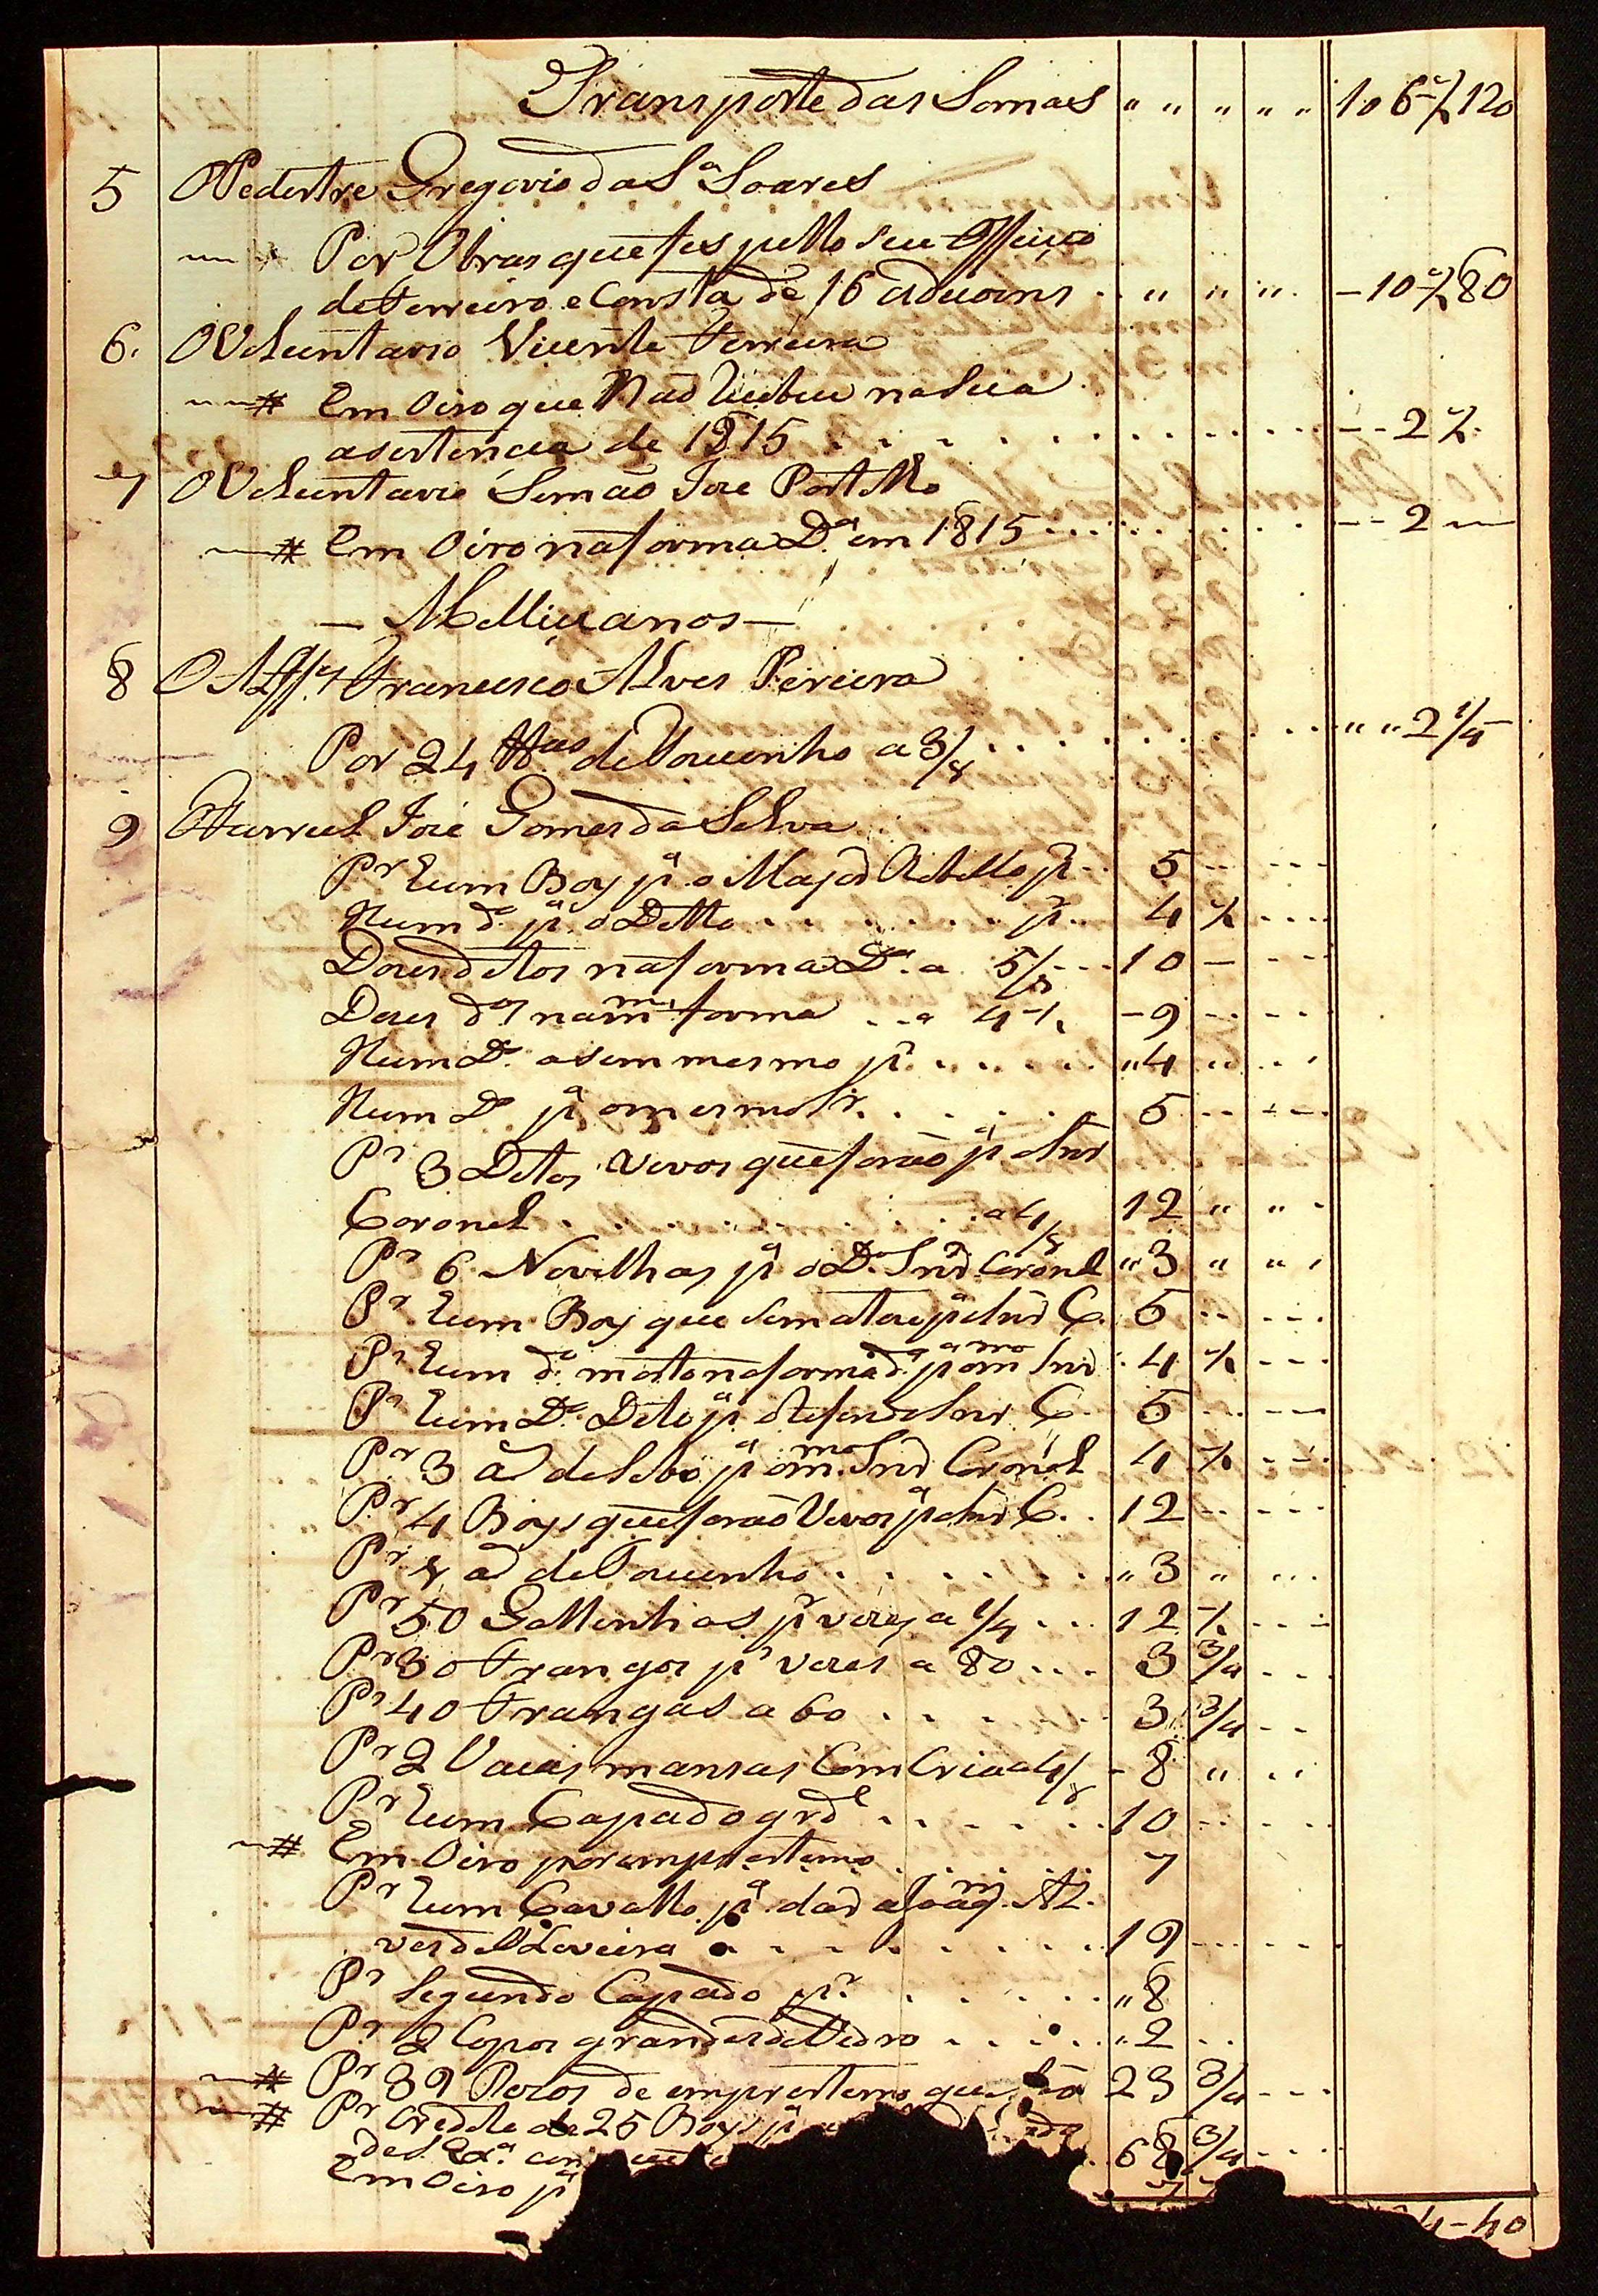 Transporte das Somas " " " " " 106 ½ 120
5 O Pedestre Gregorio da S.ª Soares
Por Obras que fes pello seu Officio
de Ferreiro e Consta de 16 adicoins " " " 10 ½ 80
6. O Voluntario Vicente Ferreira
# Em Oiro que Não na sua
asestencia de 1815 2 ½
7 O Voluntario Simão Joze Portello
# Em Oiro na forma D.ª em 1815 2
— Millicianos —
8 O Alff.ˢ Francisco Alves Periera
Por 24 de Toucinho a 3/8 " " 2 ¼
9 Furriel Joze Gomes da Selva
P.r hum Boy p.ª o Major Rebello p.r 5
Hum d.º p.ª o Ditto p.r 4 ½
Dois detos na forma D.ª a 5/8 10
Dois d.os na m.ma forma a 4 ½ 9
Hum D.º asim mesmo p.r "4
Hum D.º p.ª o mesmo Sr. 5
P.r 3 Detos vivos que forão p.ª o Snr
Coronel a 4/8 12 " "
P.r 6 Novilhas p.ª o D.º Snr Coronel "3 " "
P.r hum Boy que se matou p.ª o Snr C. 5
P.r hum d.º morto na forma d.ª p.ª o m.mo Snr 4 ½
P.r hum D.º Deto p.ª o Snr C. 5
P.r 3 @ de Sebo p.ª o m.mo Snr Coronel 4 ½
P.r 4 Boys que forão Vivos p.ª o Snr C. 12
P.r 8 @ de Toucinho " 3 "
P.r 50 Gallinhas p.r vezes a ¼ 12 ½
P.r 30 Frangos p.r vezes a 80 3 ¾
P.r 40 Frangas a 60 3 ¾
P.r 2 Vacas mansas Com Cria a 4/8 8 "
P.r hum Capado grd.e 10
# Em Oiro por emprestemo 7
P.r hum Cavallo p.ª dar a Joaq.m Al-
ves de Oliveira 19
P.r Segundo Capado p.r "8
P.r 2 Copos grandes de Vidro " 2
# P.r 39 de emprestemo que 23 ¾
# P.r Credite de 25 Boys p.ª
de S. Ex.ª 68 ¾
Em Oiro p.ª
4-40